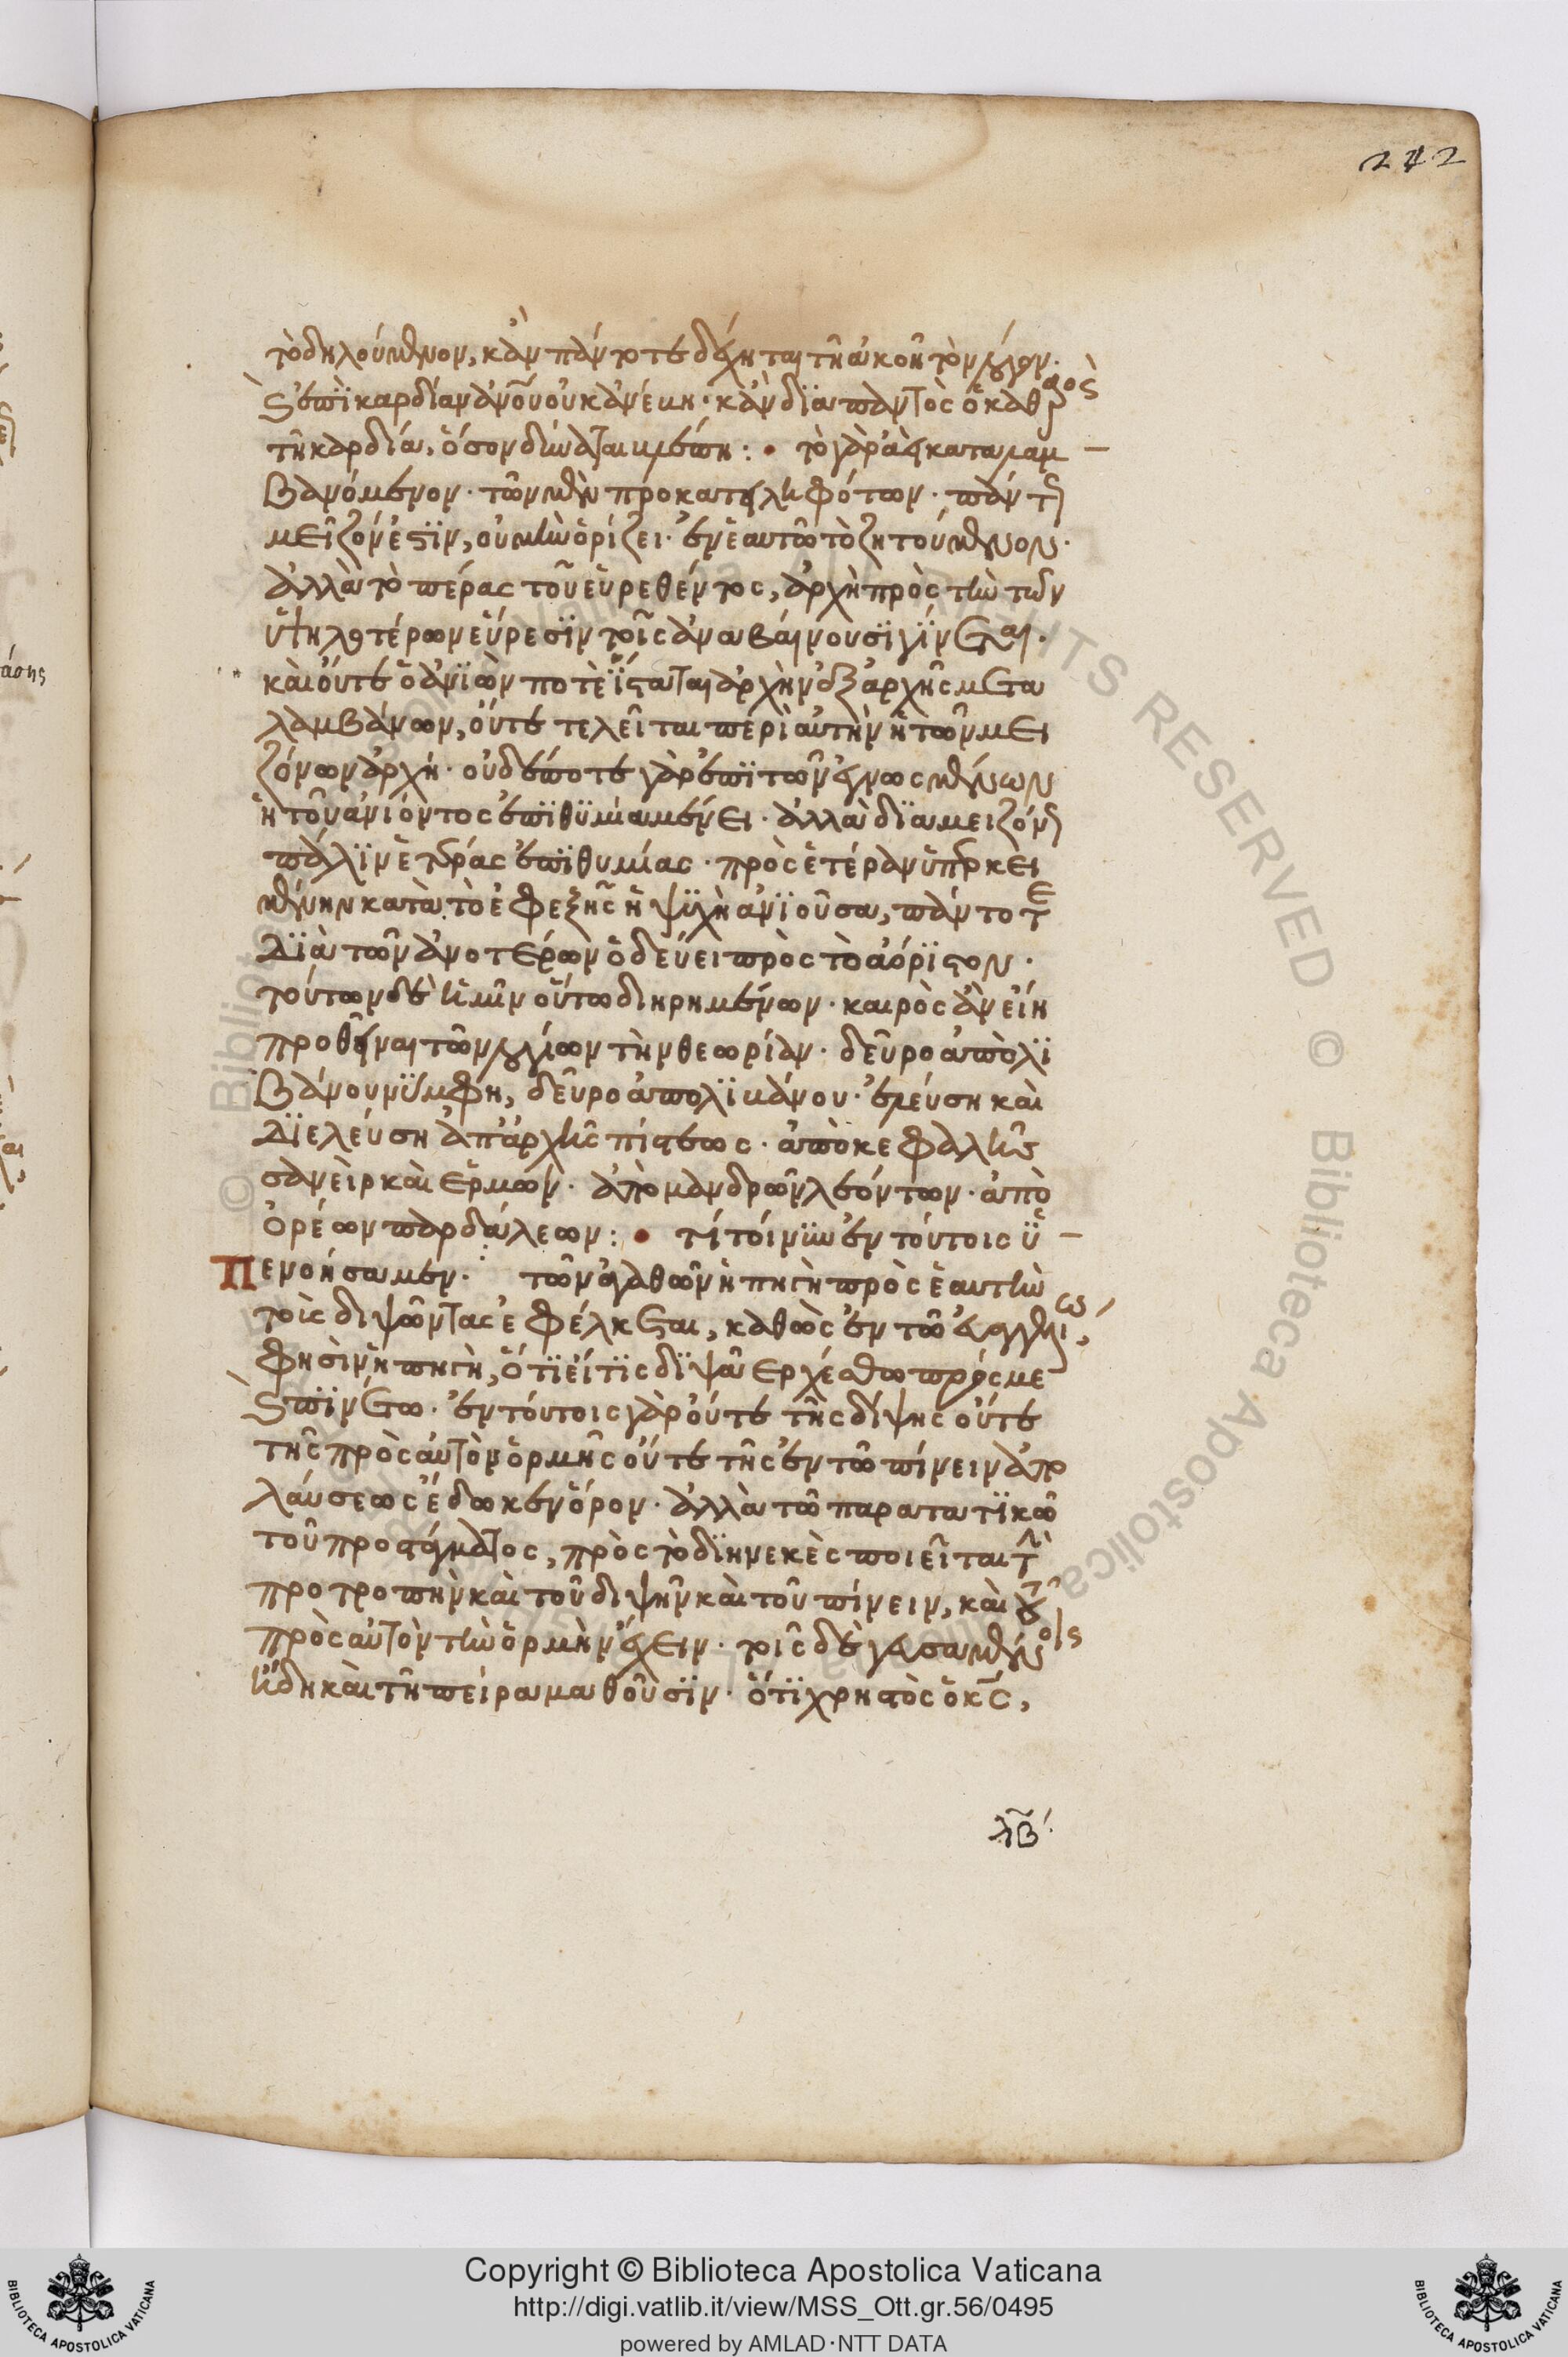 242
τὸ δηλούμενον, κἂν πάντοτε δέχηται τῇ ἀκοῇ τὸν λόγον·
καὶ ἐπὶ καρδίαν ἀνου οὐκ ἀνέβη· κἂν διαπαντὸς ὁ καθαρὸς
τῇ καρδία, ὅσον δύναται βλέπη: • τὸ γὰρ ἀεὶ καταλαμ
βανόμενον· τῶν μὲν προκατειληφότων· πάντ
μεῖζόν ἐστιν, οὐ μὴν ὁρίζει· ἐν ἑαυτῶ τὸ ζητούμενον·
ἀλλὰ τὸ πέρας τοῦ εὑρεθέντος, ἀρχὴ πρὸς τὴν τῶν
ὑψηλοτέρων εὕρεσϊν τοῖς ἀναβαίνουσϊ γίνεται·
καὶ οὔτε ὁ ἀνϊὼν ποτὲ ἵσταται ἀρχὴν ἐξ ἀρχῆς μετα
λαμβάνων, οὔτε τελεῖται περὶ αὐτὴν ἡ τῶν μει
ζόνων ἀρχή· οὐδέποτε γὰρ ἐπϊ τῶν ἐγνωσμένων
ἡ τοῦ ἀνιόντος ἐπϊθϋμία μένει· ἀλλὰ δϊα μειζόν
πάλϊν ἑτέρας ἐπϊθυμίας· πρὸς ἑτέραν ὑπερκει
μένην κατὰ τὸ ἐφεξῆς ἡ ψϋχὴ ἀνϊοῦσα, πάντοτε
δϊὰ τῶν ἀνοτέρων ὁδεύει πρὸς τὸ ἀόρϊστον·
τούτων δὲ ἡμῖν οὕτω διηρημένων· καιρὸς ἂν εἴη
προθεῖναι τῶν λογίων τὴν θεωρίαν· δεῦρο ἀπὸ λϊ
βάνου νϋμφη, δεῦρο ἀπο λϊβάνου· ἐλεύση καὶ
δϊελεύση ἀπ' ἀρχῆς πίστεως· ἀπὸ κεφαλῆς
σανεὶρ καὶ ἑρμών· ἀπὸ μανδρῶν λεόντων· ἀπὸ
ὀρέων παρδάλεων: • τί τοίνϋν ἐν τούτοις ὑ
Πενοήσαμεν· τῶν ἀγαθῶν ἡ πηγὴ πρὸς ἑαυτὴν
τοὺς διψῶντας ἐφέλκεται, καθὼς ἐν τῶ εὐαγγελίω,
φησὶν ἡ πηγὴ, ὅτϊ εἴ τϊς δϊψᾶ ἐρχέσθω πρός με
καὶ πϊνέτω· ἐν τούτοις γὰρ οὔτε τῆς δίψης οὔτε
τῆς πρὸς αὐτὸν ὁρμῆς οὔτε τῆς ἐν τῶ πίνειν ἀπο
λαύσεως ἔδωκεν ὅρον· ἀλλὰ τῶ παρατατϊκῶ
τοῦ προστάγματος, πρὸς τὸ δϊηνεκὲς ποιεῖται τὴν
προτροπὴν καὶ τοῦ διψῆν καὶ τοῦ πίνειν, καὶ τοῦ
πρὸς αὐτὸν τὴν ὁρμὴν ἔχειν· τοῖς δὲ γευσαμένοις
ἤδη καὶ τῆ πείρα μαθοῦσϊν· ὅτϊ χρηστὸς ὁ κς,
λβ'
άσης
Copyright © Biblioteca Apostolica Vaticana
http://digi.vatlib.it/view/MSS_Ott.gr.56/0495
powered by AMLAD·NTT DATA